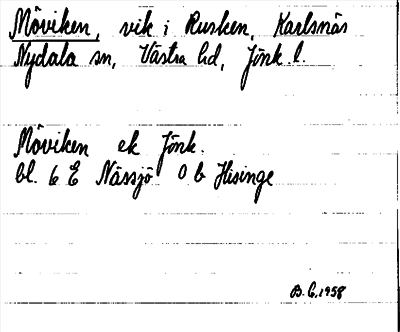 Möviken, vik i Rusken, Karlsnäs
Nydala sn, Västra hd, Jönk. l.
Möviken ek Jönk.
bl. 6 E Nässjö 0 b Hisinge
B.G. 1958